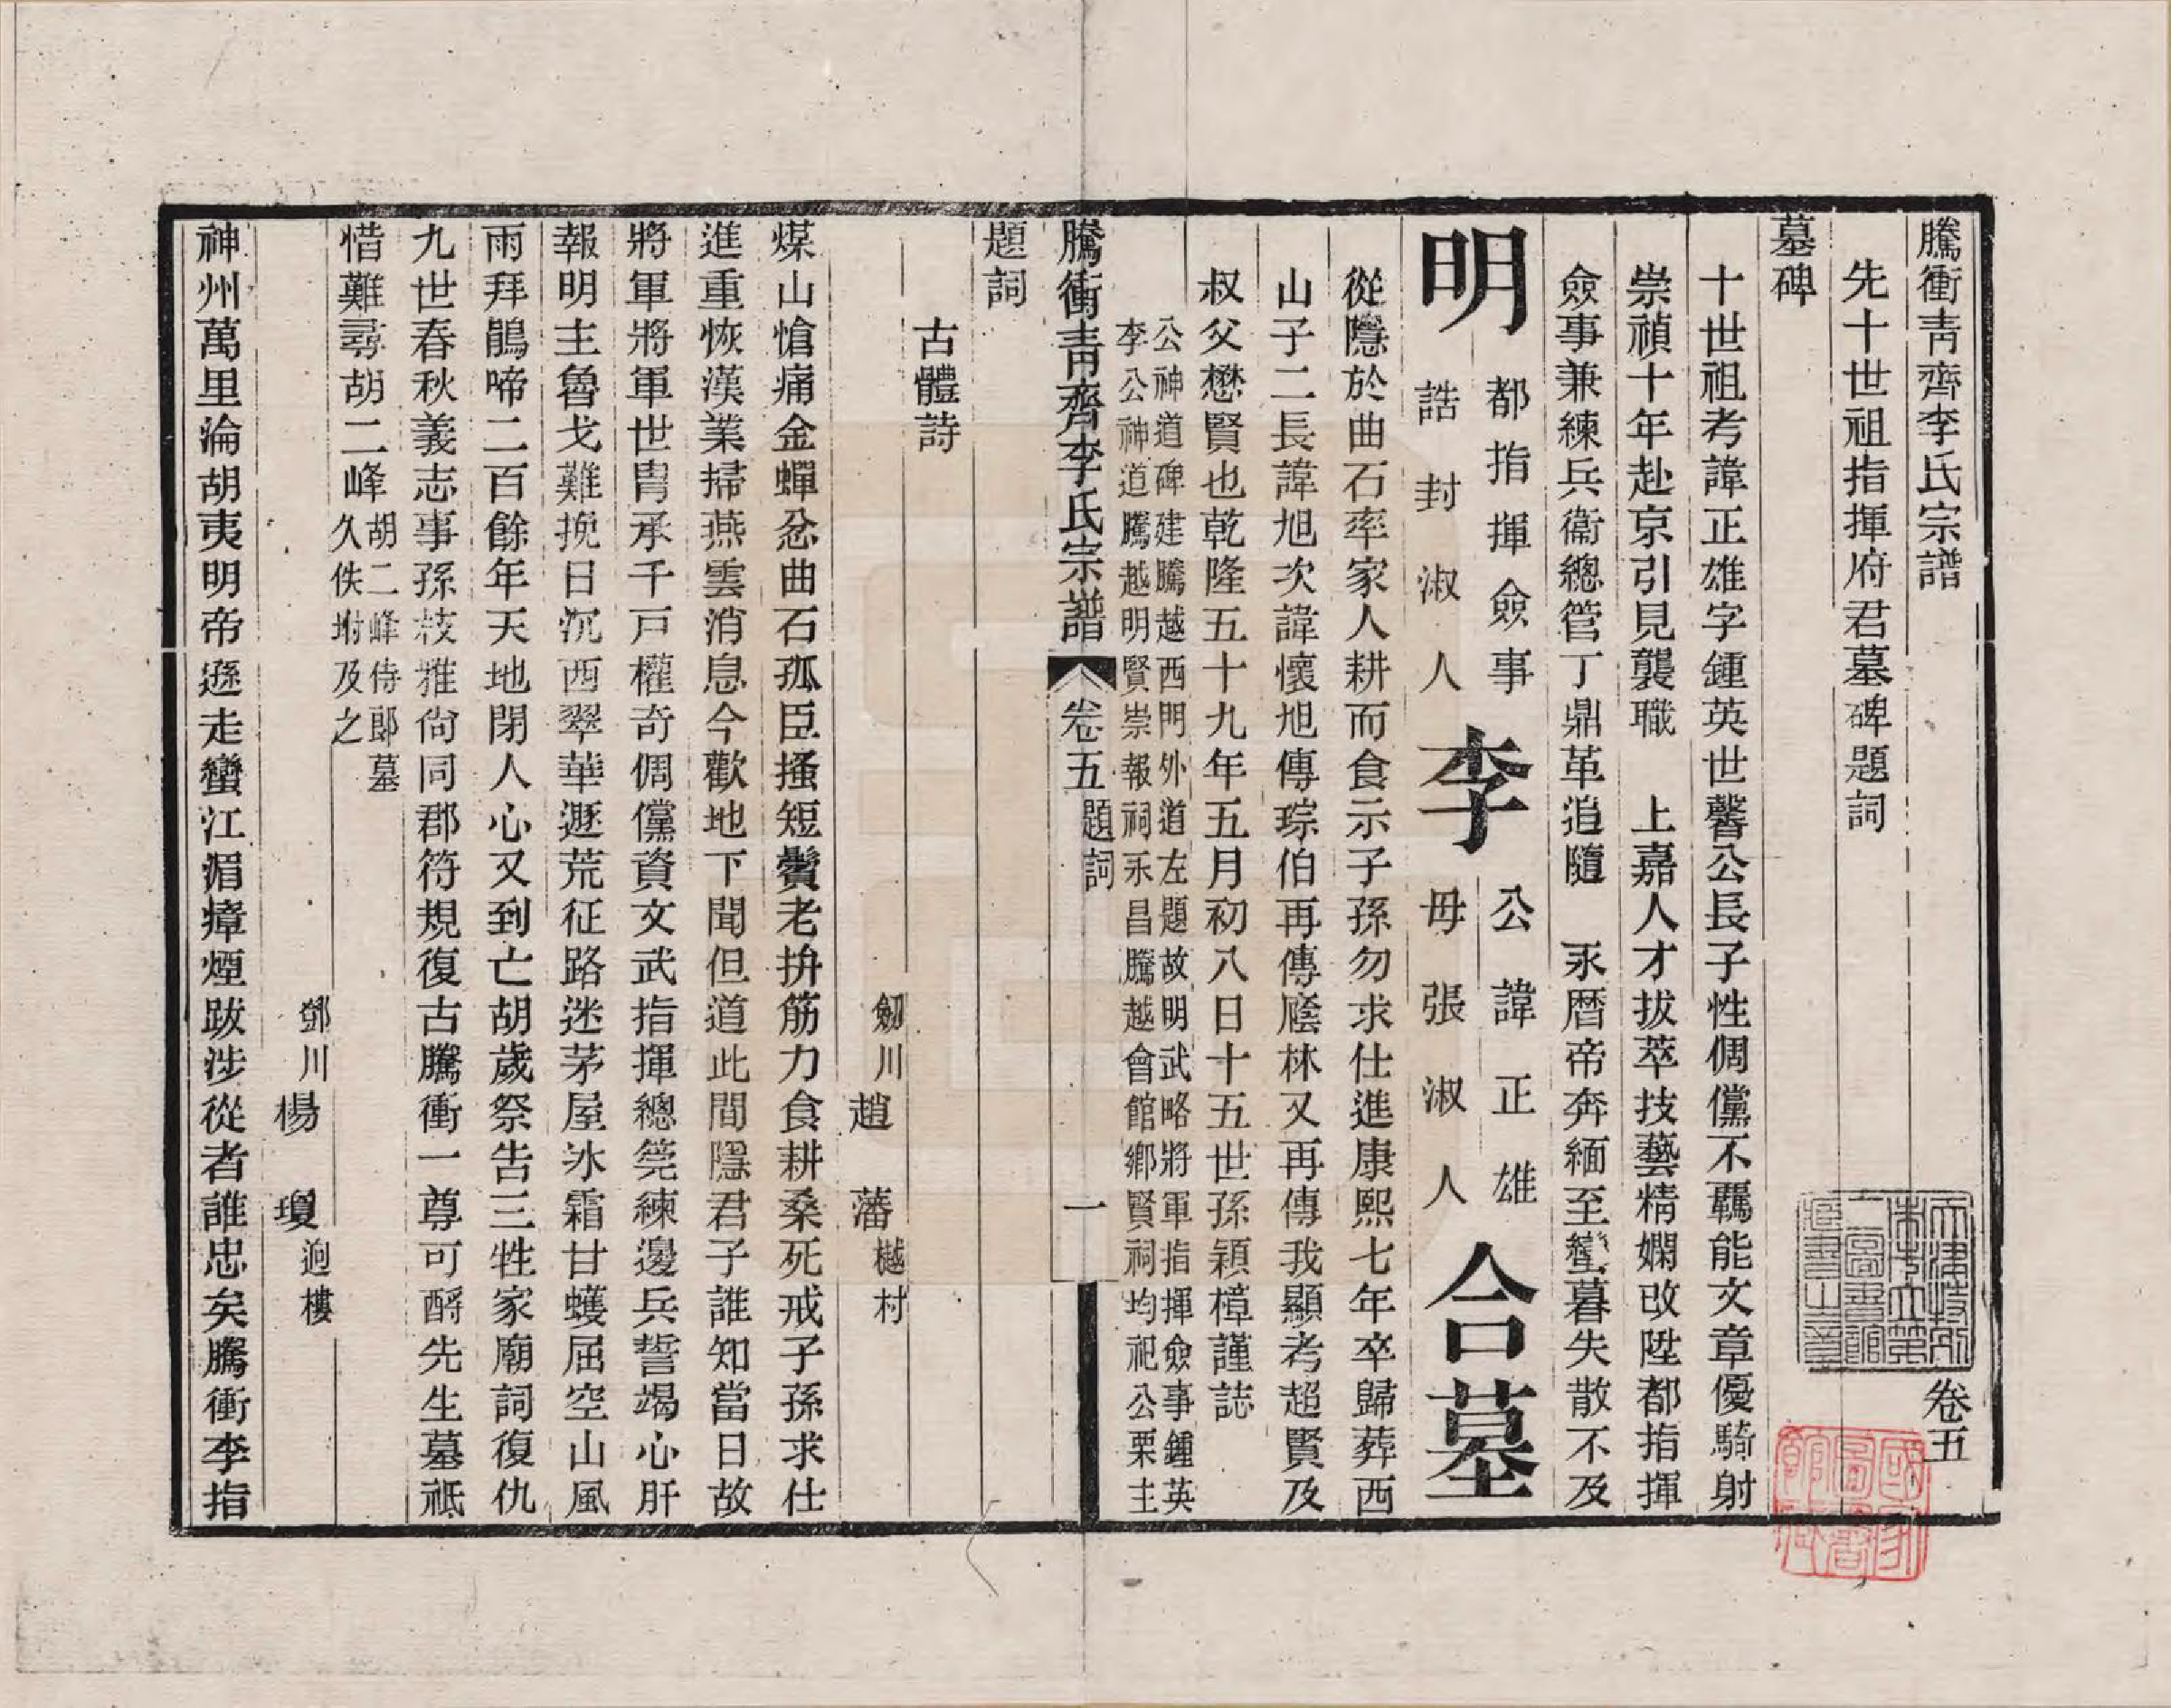 騰衝青齊李氏宗譜 卷五
先十世祖指揮府君墓碑題詞
墓碑
十世祖考諱正雄字鍾英世馨公長子性倜儻不羈能文章優騎射
崇禎十年赴京引見襲職 上嘉人才拔萃技藝精嫻改陞都指揮
僉事兼練兵衞總管丁鼎革追隨 永曆帝奔緬至蠻暮失散不及
明 都指揮僉事 李 公諱正雄 合墓
誥封淑人 母張淑人
從隱於曲石率家人耕而食示子孫勿求仕進康熙七年卒歸葬西
山子二長諱旭次諱懷旭傳琮伯再傳廕林又再傳我顯考超賢及
叔父懋賢也乾隆五十九年五月初八日十五世孫穎樟謹誌
公神道碑建騰越西門外道左題故明武略將軍指揮僉事鍾英
李公神道騰越明賢崇報祠永昌騰越會館鄉賢祠均祀公栗主
騰衝青齊李氏宗譜 卷五 題詞 一
題詞
古體詩
劔川趙藩樾村
煤山愴痛金蟬忿曲石孤臣搔短鬢老拚筋力食耕桑死戒子孫求仕
進重恢漢業掃燕雲消息今歡地下聞但道此間隱君子誰知當日故
將軍將軍世胄承千戸權奇倜儻資文武指揮總筦練邊兵誓竭心肝
報明主魯戈難挽日沉西翠華遯荒征路迷茅屋氷霜甘蠖屈空山風
雨拜鵑啼二百餘年天地閉人心又到亡胡歲祭告三牲家廟詞復仇
九世春秋義志事孫枝雅尙同郡符規復古騰衝一尊可酹先生墓祗
惜難尋胡二峰 胡二峰侍郞墓
久佚坿及之
鄧川楊瓊迥樓
神州萬里淪胡夷明帝遜走蠻江湄瘴煙跋涉從者誰忠矣騰衝李指